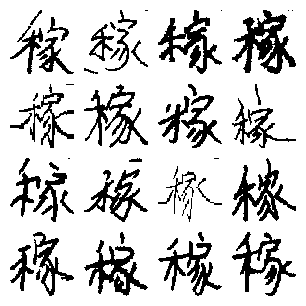 稼稼稼稼
稼稼稼稼
稼稼稼稼
稼稼稼稼